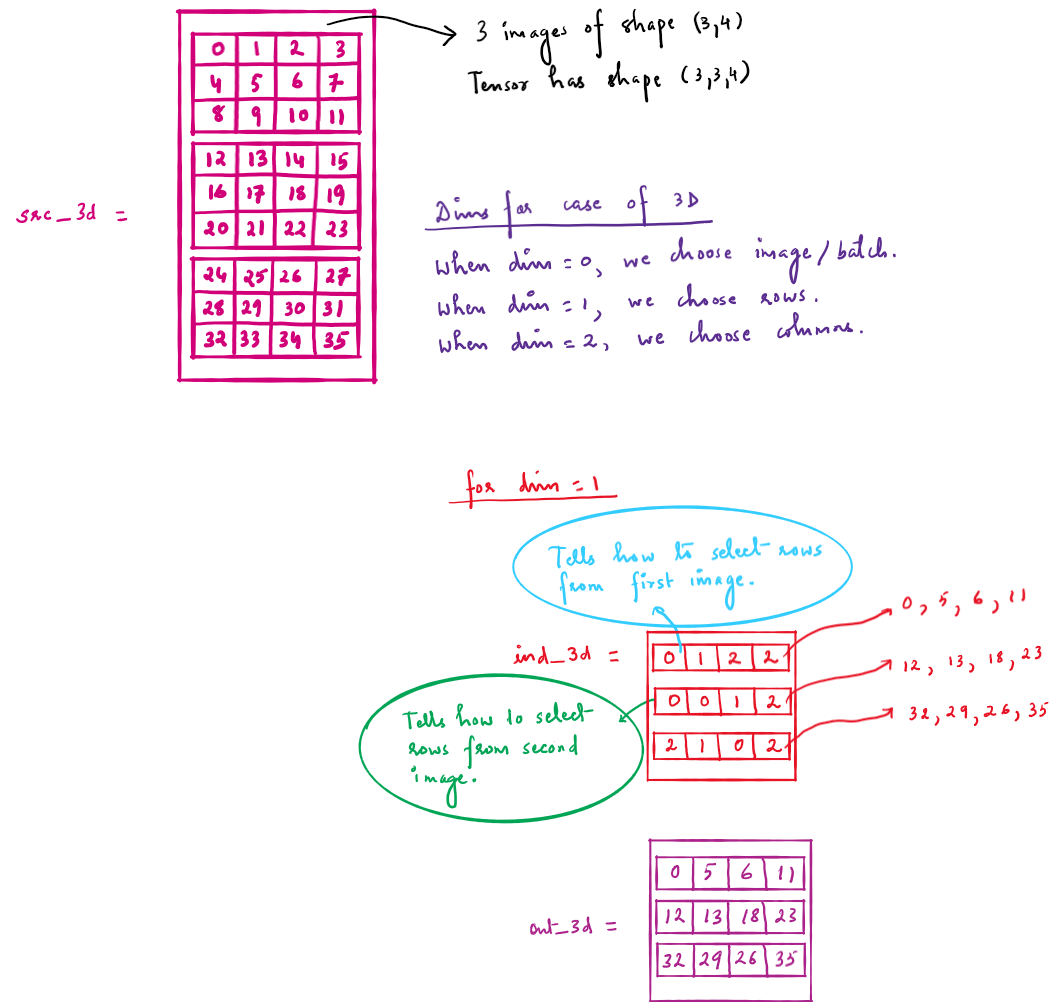 3 images of shape (3,4)
Tensor has shape (3,3,4)
0 1 2 3
4 5 6 7
8 9 10 11
12 13 14 15
16 17 18 19
20 21 22 23
24 25 26 27
28 29 30 31
32 33 34 35
src_3d =
Dims for case of 3D
When dim = 0, we choose image/batch.
When dim = 1, we choose rows.
When dim = 2, we choose columns.
for dim = 1
Tells how to select rows
from first image.
ind_3d =
0 1 2 2
0, 5, 6, 11
0 0 1 2
12, 13, 18, 23
2 1 0 2
32, 29, 26, 35
Tells how to select
rows from second
image.
out_3d =
0 5 6 11
12 13 18 23
32 29 26 35